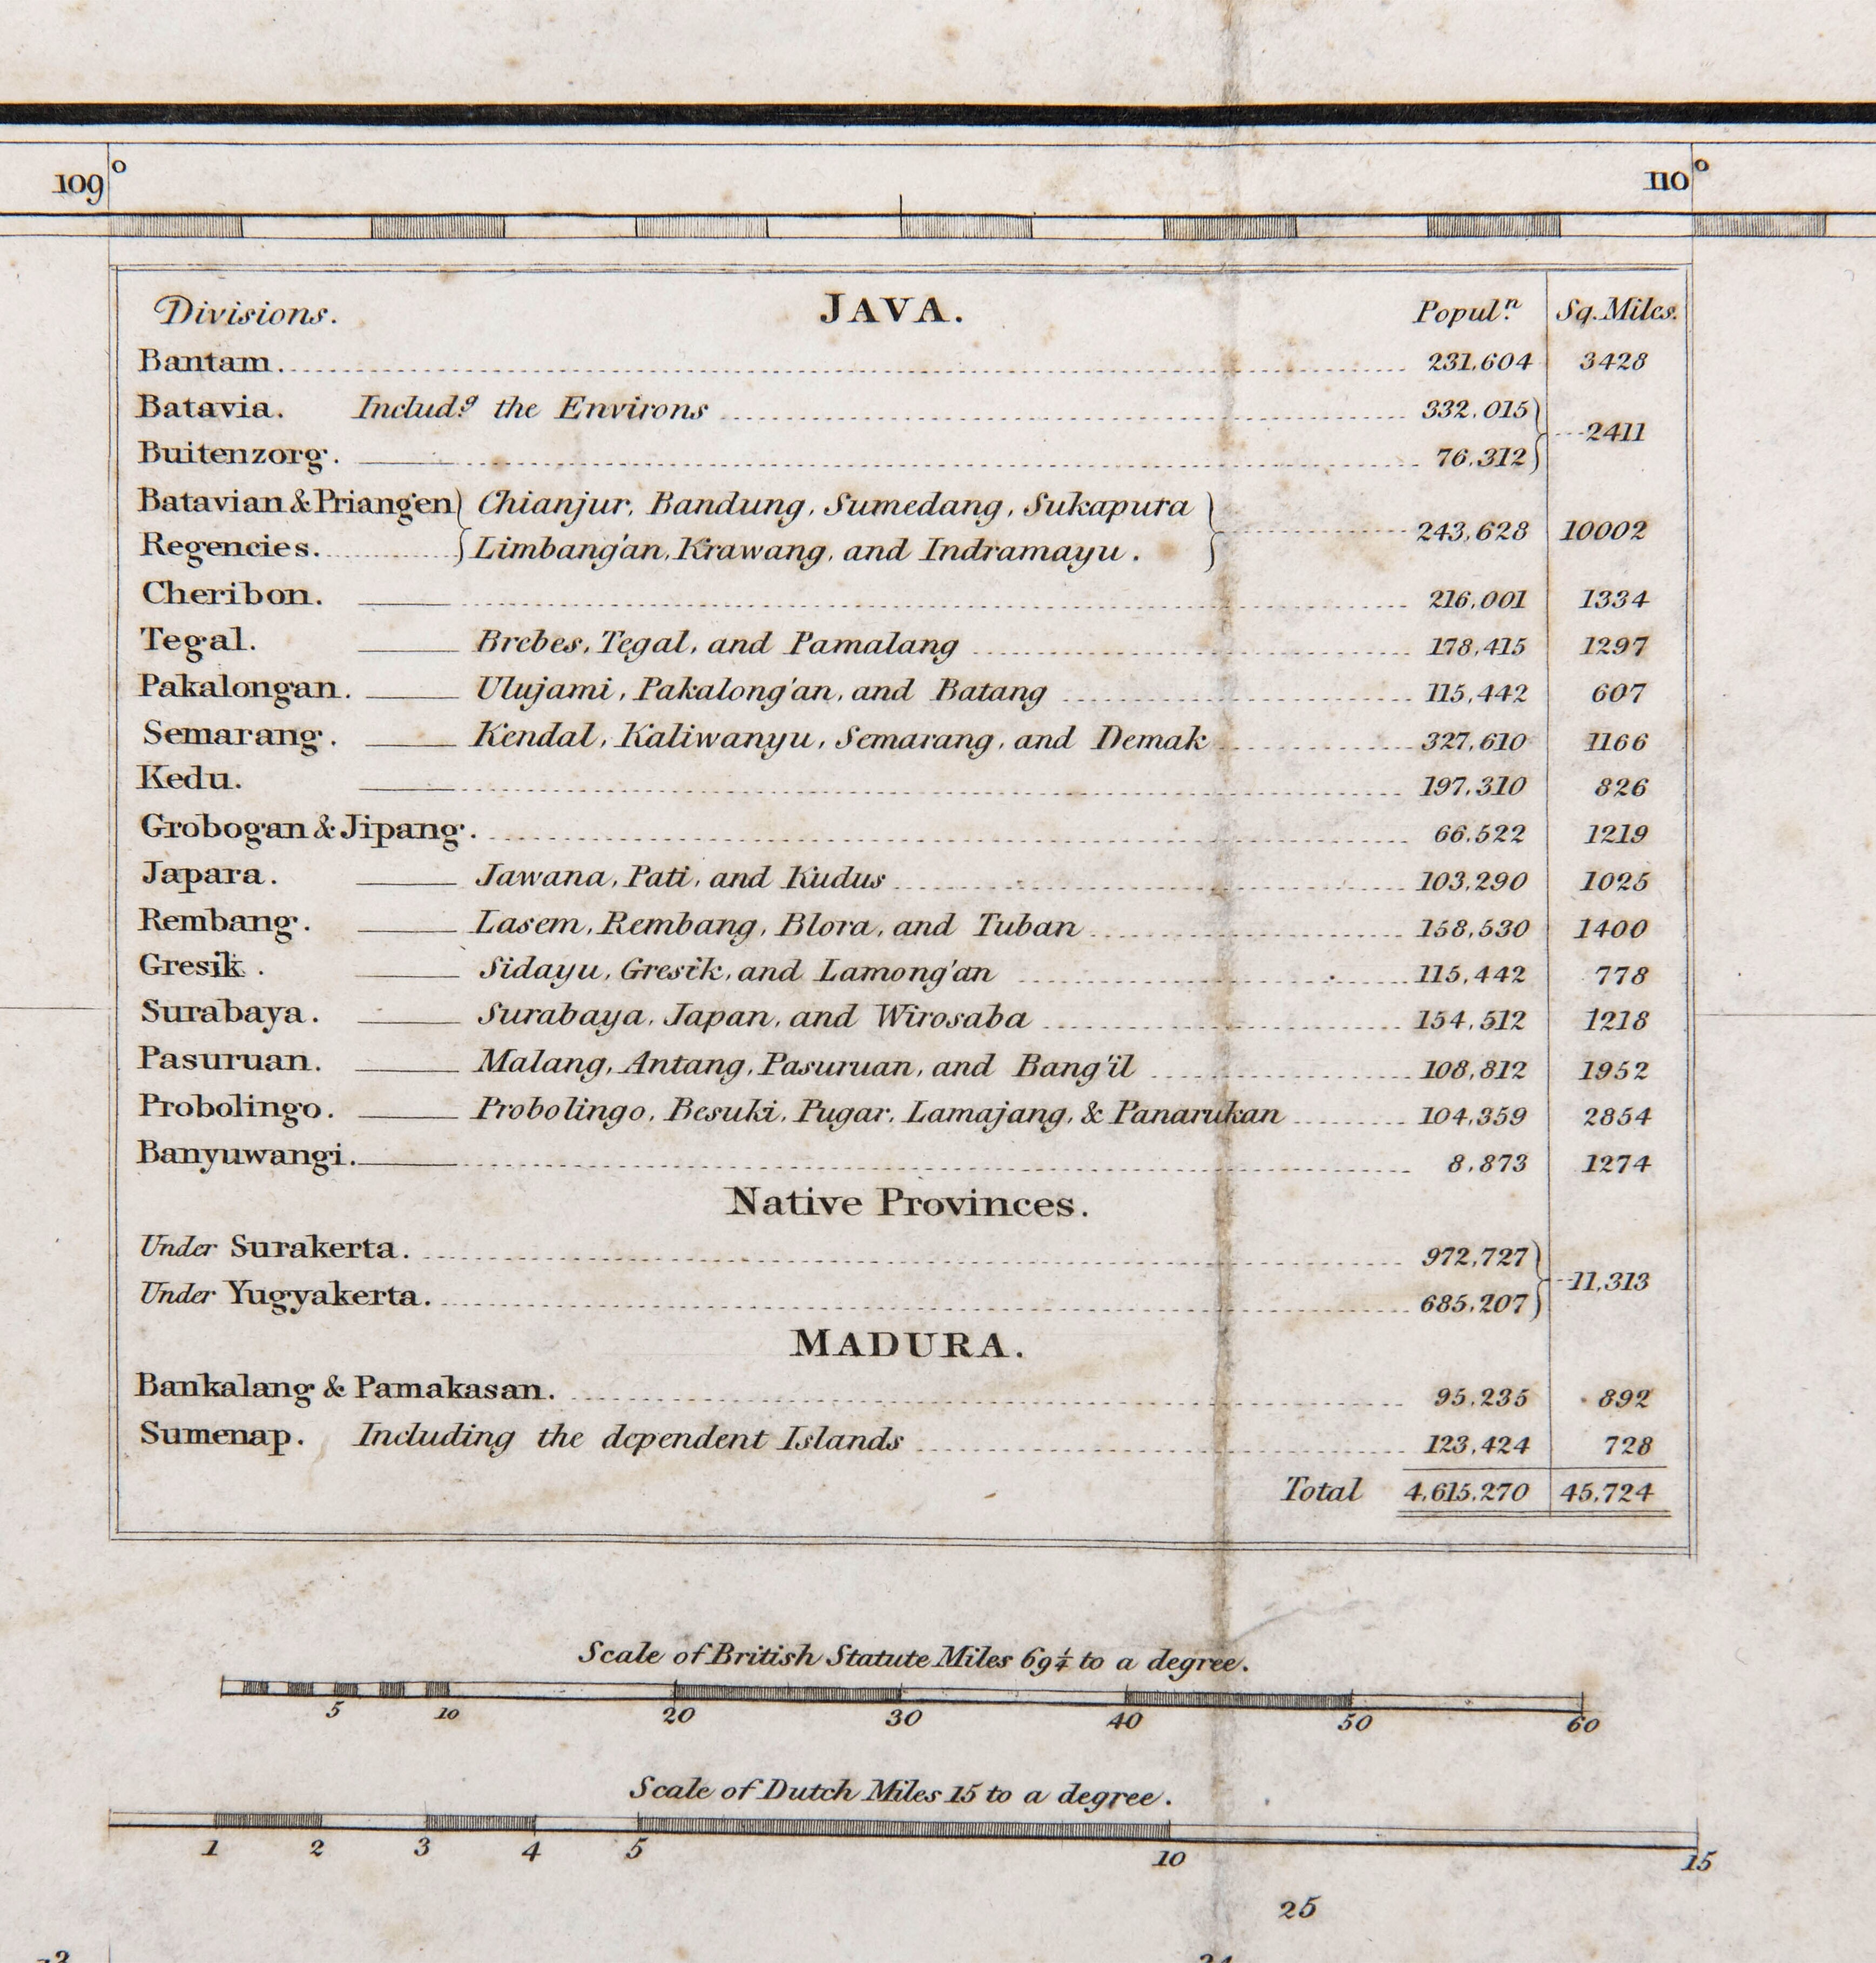 109° 110°
Divisions. JAVA. Popul.ⁿ Sq. Miles.
Bantam. 231,604 3428
Batavia. Includ.g the Environs 332,015
2411
Buitenzorg. 76,312
Batavian & Priangen Chianjur, Bandung, Sumedang, Sukapura
243,628 10002
Regencies. Limbang'an, Krawang, and Indramayu.
Cheribon. 216,001 1334
Tegal. Brebes, Tegal, and Pamalang 178,415 1297
Pakalongan. Ulujami, Pakalong'an, and Batang 115,442 607
Semarang. Kendal, Kaliwanyu, Semarang, and Demak 327,610 1166
Kedu. 197,310 826
Grobogan & Jipang. 66,522 1219
Japara. Jawana, Pati, and Kudus 103,290 1025
Rembang. Lasem, Rembang, Blora, and Tuban 158,530 1400
Gresik. Sidayu, Gresik, and Lamong'an 115,442 778
Surabaya. Surabaya, Japan, and Wirosaba 154,512 1218
Pasuruan. Malang, Antang, Pasuruan, and Bang'il 108,812 1952
Probolingo. Probolingo, Besuki, Pugar, Lamajang, & Panarukan 104,359 2854
Banyuwangi. 8,873 1274
Native Provinces.
Under Surakerta. 972,727
11,313
Under Yugyakerta. 685,207
MADURA.
Bankalang & Pamakasan. 95,235 892
Sumenap. Including the dependent Islands 123,424 728
Total 4,615,270 45,724
Scale of British Statute Miles 69¼ to a degree.
5 10 20 30 40 50 60
Scale of Dutch Miles 15 to a degree.
1 2 3 4 5 10 15
25